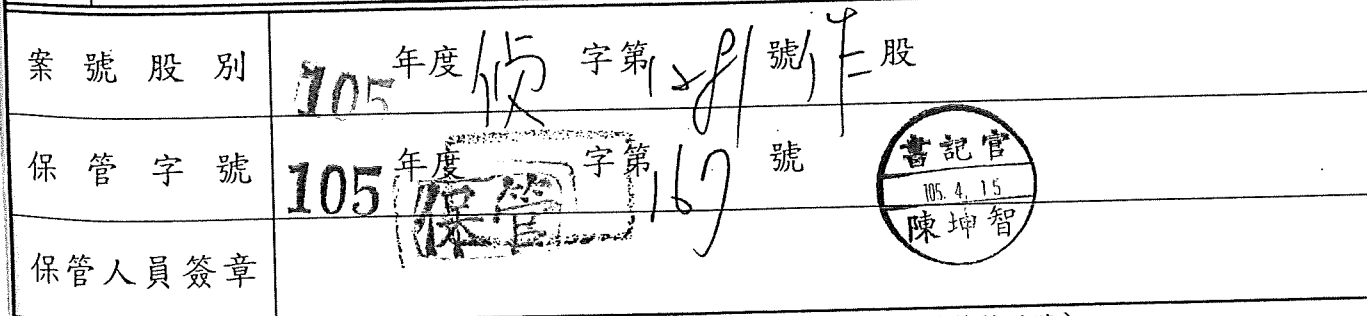 案號股別 105 年度偵字第1281號 股
保管字號 105 年度保管字第167號
書記官
105.4.15
陳坤智
保管人員簽章